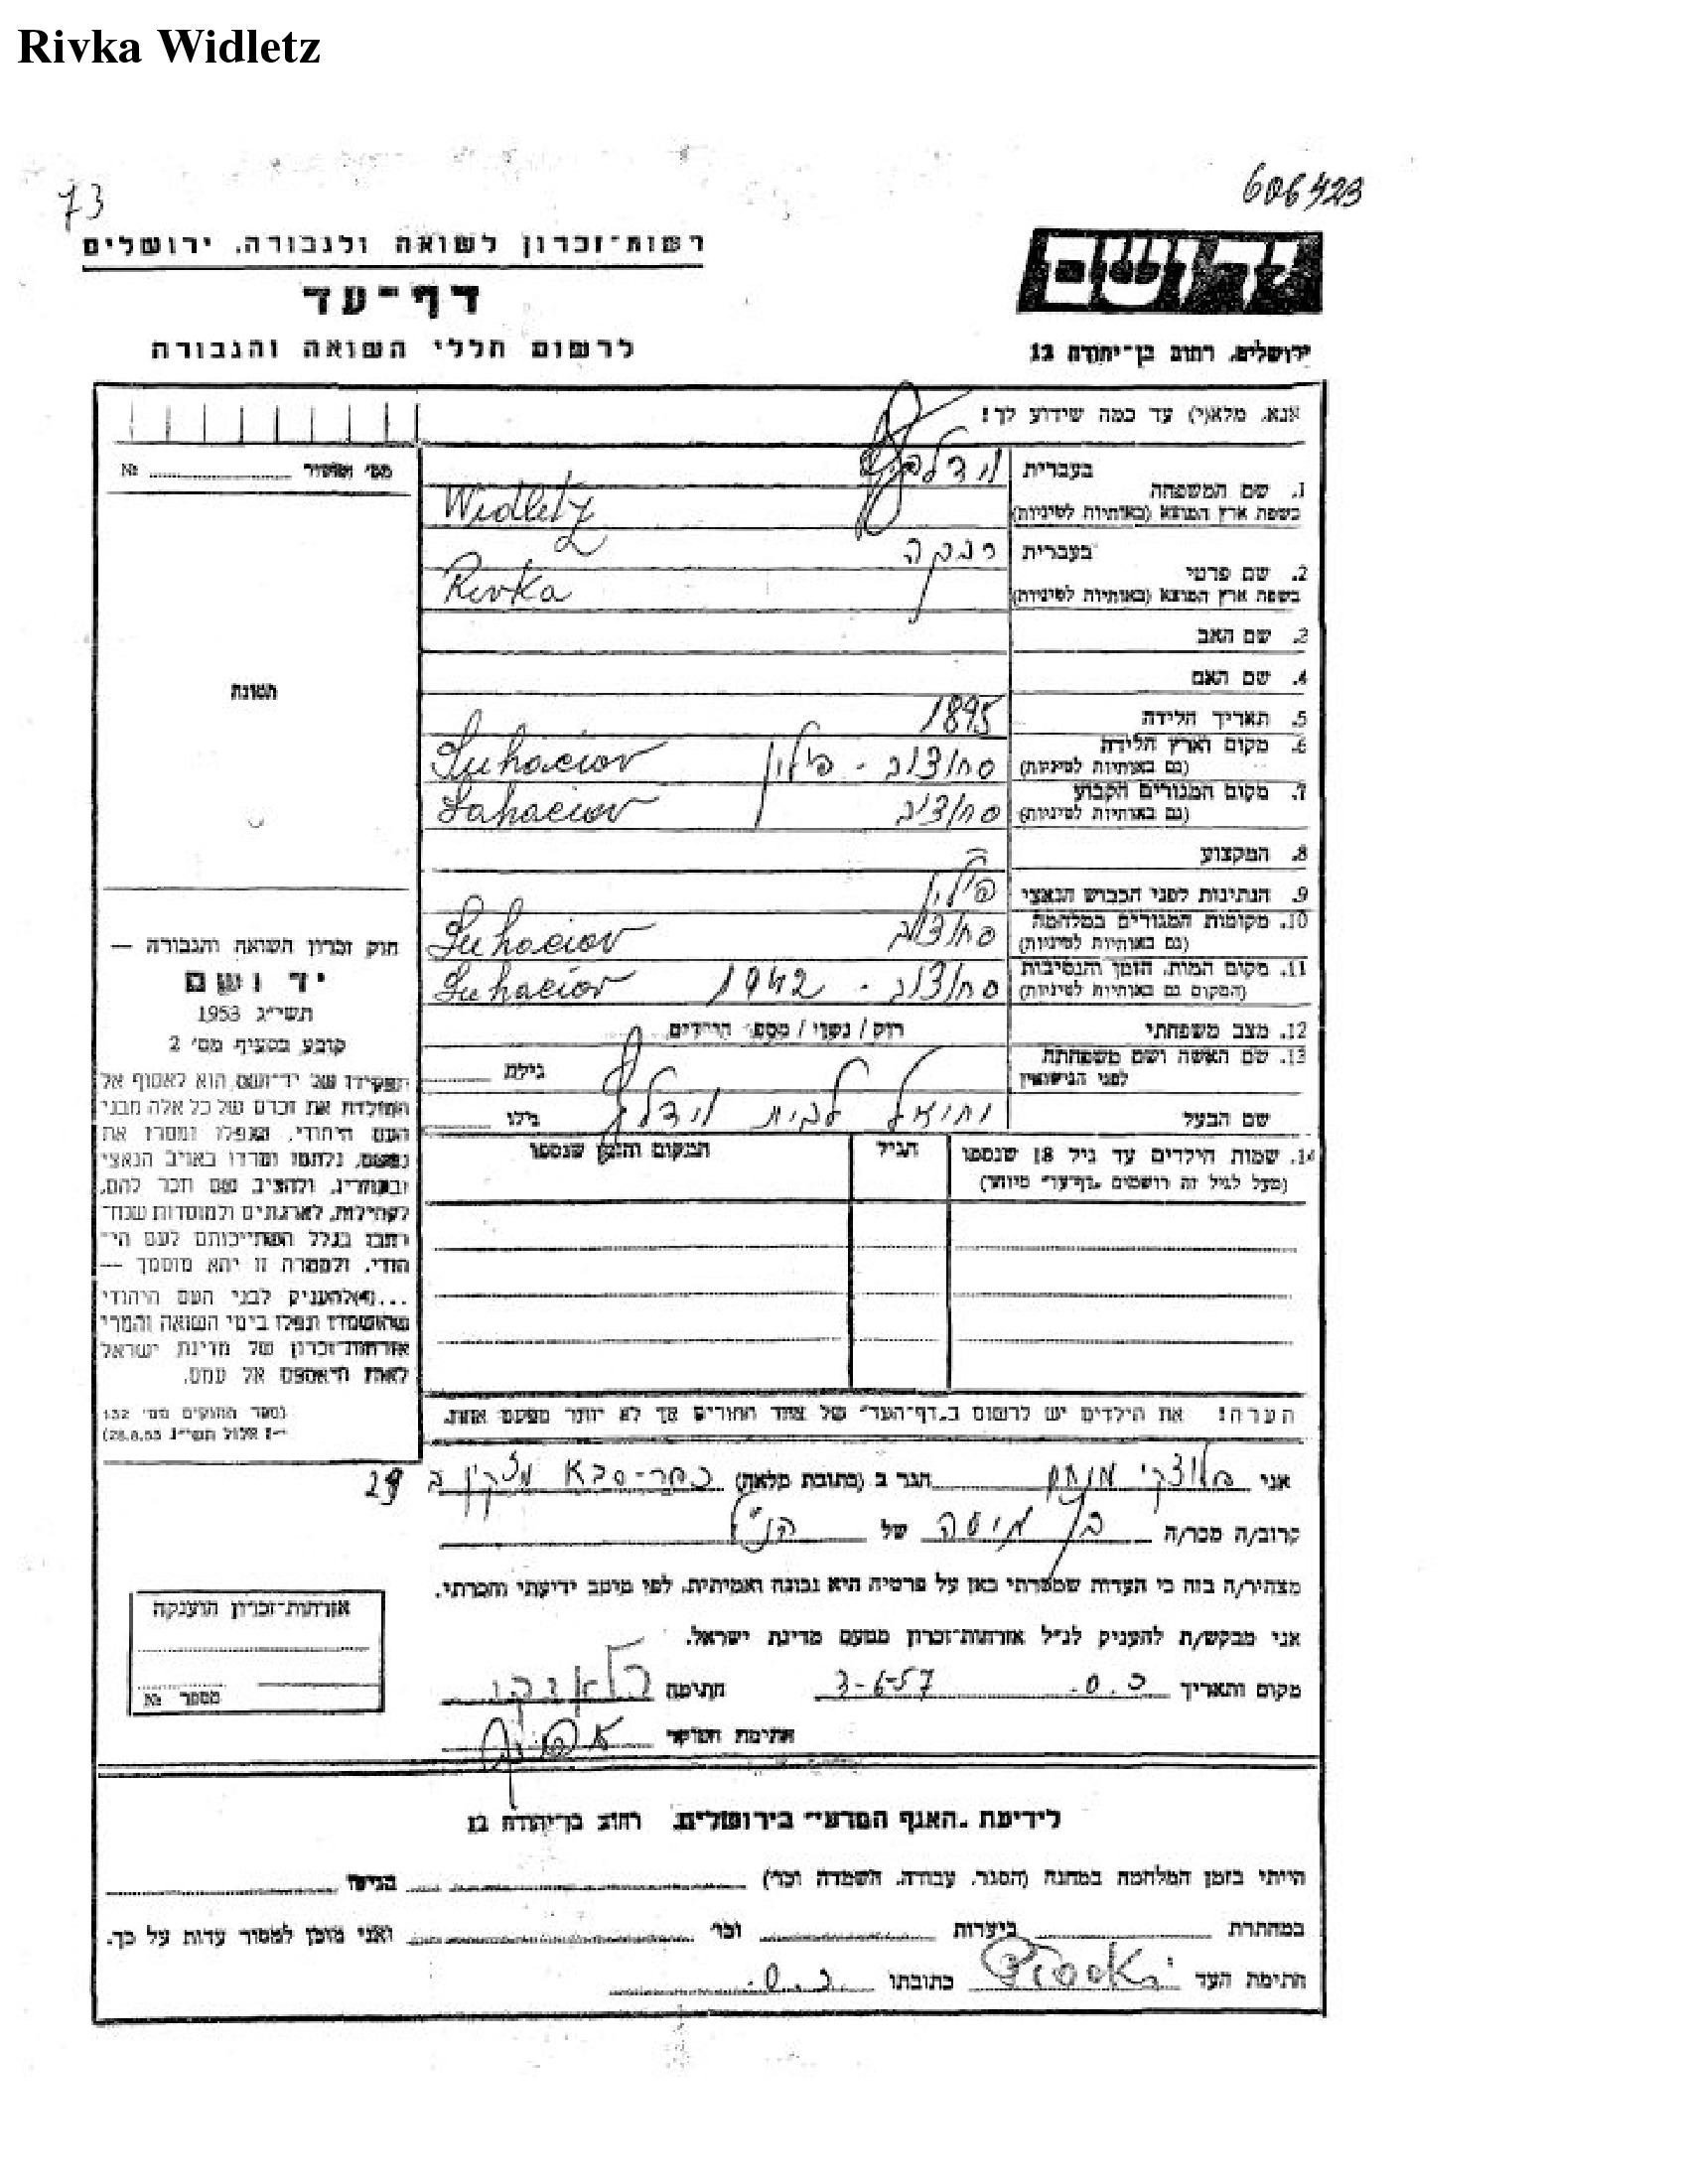 Rivka Widletz
73
606423
רשות־זכרון לשואה ולגבורה, ירושלים
דף־עד
לרשום חללי השואה והגבורה
יד ושם
ירושלים, רחוב בן־יהודה 12
אנא, מלא(י) עד כמה שידוע לך!
מס' №
בעברית
1. שם המשפחה
בשפת ארץ המוצא (באותיות לטיניות)
Widletz
בעברית רבקה
2. שם פרטי
בשפת ארץ המוצא (באותיות לטיניות)
Rivka
3. שם האב
4. שם האם
תמונה
5. תאריך הלידה 1895
6. מקום וארץ הלידה סחוצ'וב - פולין Suhaciov
(גם באותיות לטיניות)
7. מקום המגורים הקבוע סחוצ'וב Sohaciov
(גם באותיות לטיניות)
8. המקצוע
9. הנתינות לפני הכבוש הנאצי פולין
10. מקומות המגורים במלחמה סחוצ'וב Suhaciov
(גם באותיות לטיניות)
11. מקום המות, הזמן והנסיבות סחוצ'וב - 1942 Suhaciov
(המקום גם באותיות לטיניות)
12. מצב משפחתי רוק / נשוי / מספר הילדים
13. שם האשה ושם משפחתה
לפני הנישואין
גילה
שם הבעל לבית גילו
14. שמות הילדים עד גיל 18 שנספו הגיל המקום והזמן שנספו
(מעל לגיל זה רושמים „דף־עד" מיוחד)
חוק זכרון השואה והגבורה —
יד ושם
תשי"ג 1953
קובע בסעיף מס' 2
תפקידו של יד־ושם הוא לאסוף אל
המולדת את זכרם של כל אלה מבני
העם היהודי, שנפלו ומסרו את
נפשם, נלחמו ומרדו באויב הנאצי
ובעוזריו, ולהציב שם וזכר להם,
לקהילות, לארגונים ולמוסדות שנח־
רבו בגלל השתייכותם לעם הי־
הודי, ולמטרת זו יהא מוסמך —
...(4) להעניק לבני העם היהודי
שהושמדו ונפלו בימי השואה והמרי
אזרחות־זכרון של מדינת ישראל
לאות היאספם אל עמם.
(ספר החוקים מס' 132
י"ז אלול תשי"ג 28.8.53)
הערה! את הילדים יש לרשום ב„דף־העד" של אחד ההורים אך לא יותר מפעם אחת.
אני מנחם הגר ב (כתובת מלאה) כפר-סבא 29
קרוב/ה מכר/ה של הנ"ל
מצהיר/ה בזה כי העדות שמסרתי כאן על פרטיה היא נכונה ואמיתית, לפי מיטב ידיעתי והכרתי.
אני מבקש/ת להעניק לנ"ל אזרחות־זכרון מטעם מדינת ישראל.
מקום ותאריך כ.ס. 3-6-57 חתימה
חתימת הפוקד
אזרחות־זכרון הוענקה
מספר №
לידיעת „האגף המדעי" בירושלים, רחוב בן־יהודה 12
הייתי בזמן המלחמה במחנה (הסגר, עבודה, השמדה וכו') בגיטו
במחתרת ביערות וכו' ואני מוכן למסור עדות על כך.
חתימת העד כתובתו כ.ס.